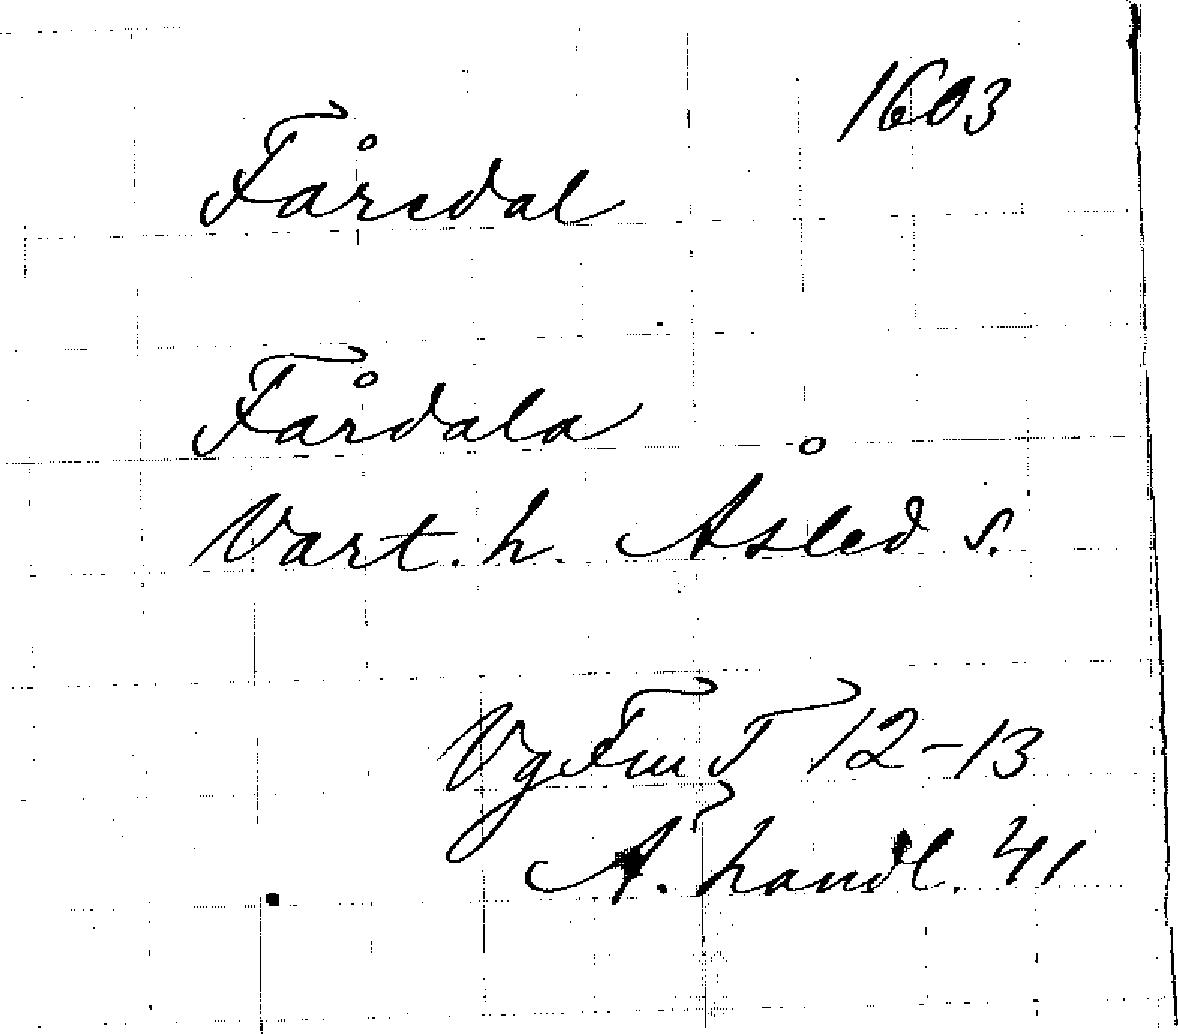 1603
Fåredal
Fårdala
Vart. h. Åsled s.
Vg Fm T 12-13
Å. handl. 41